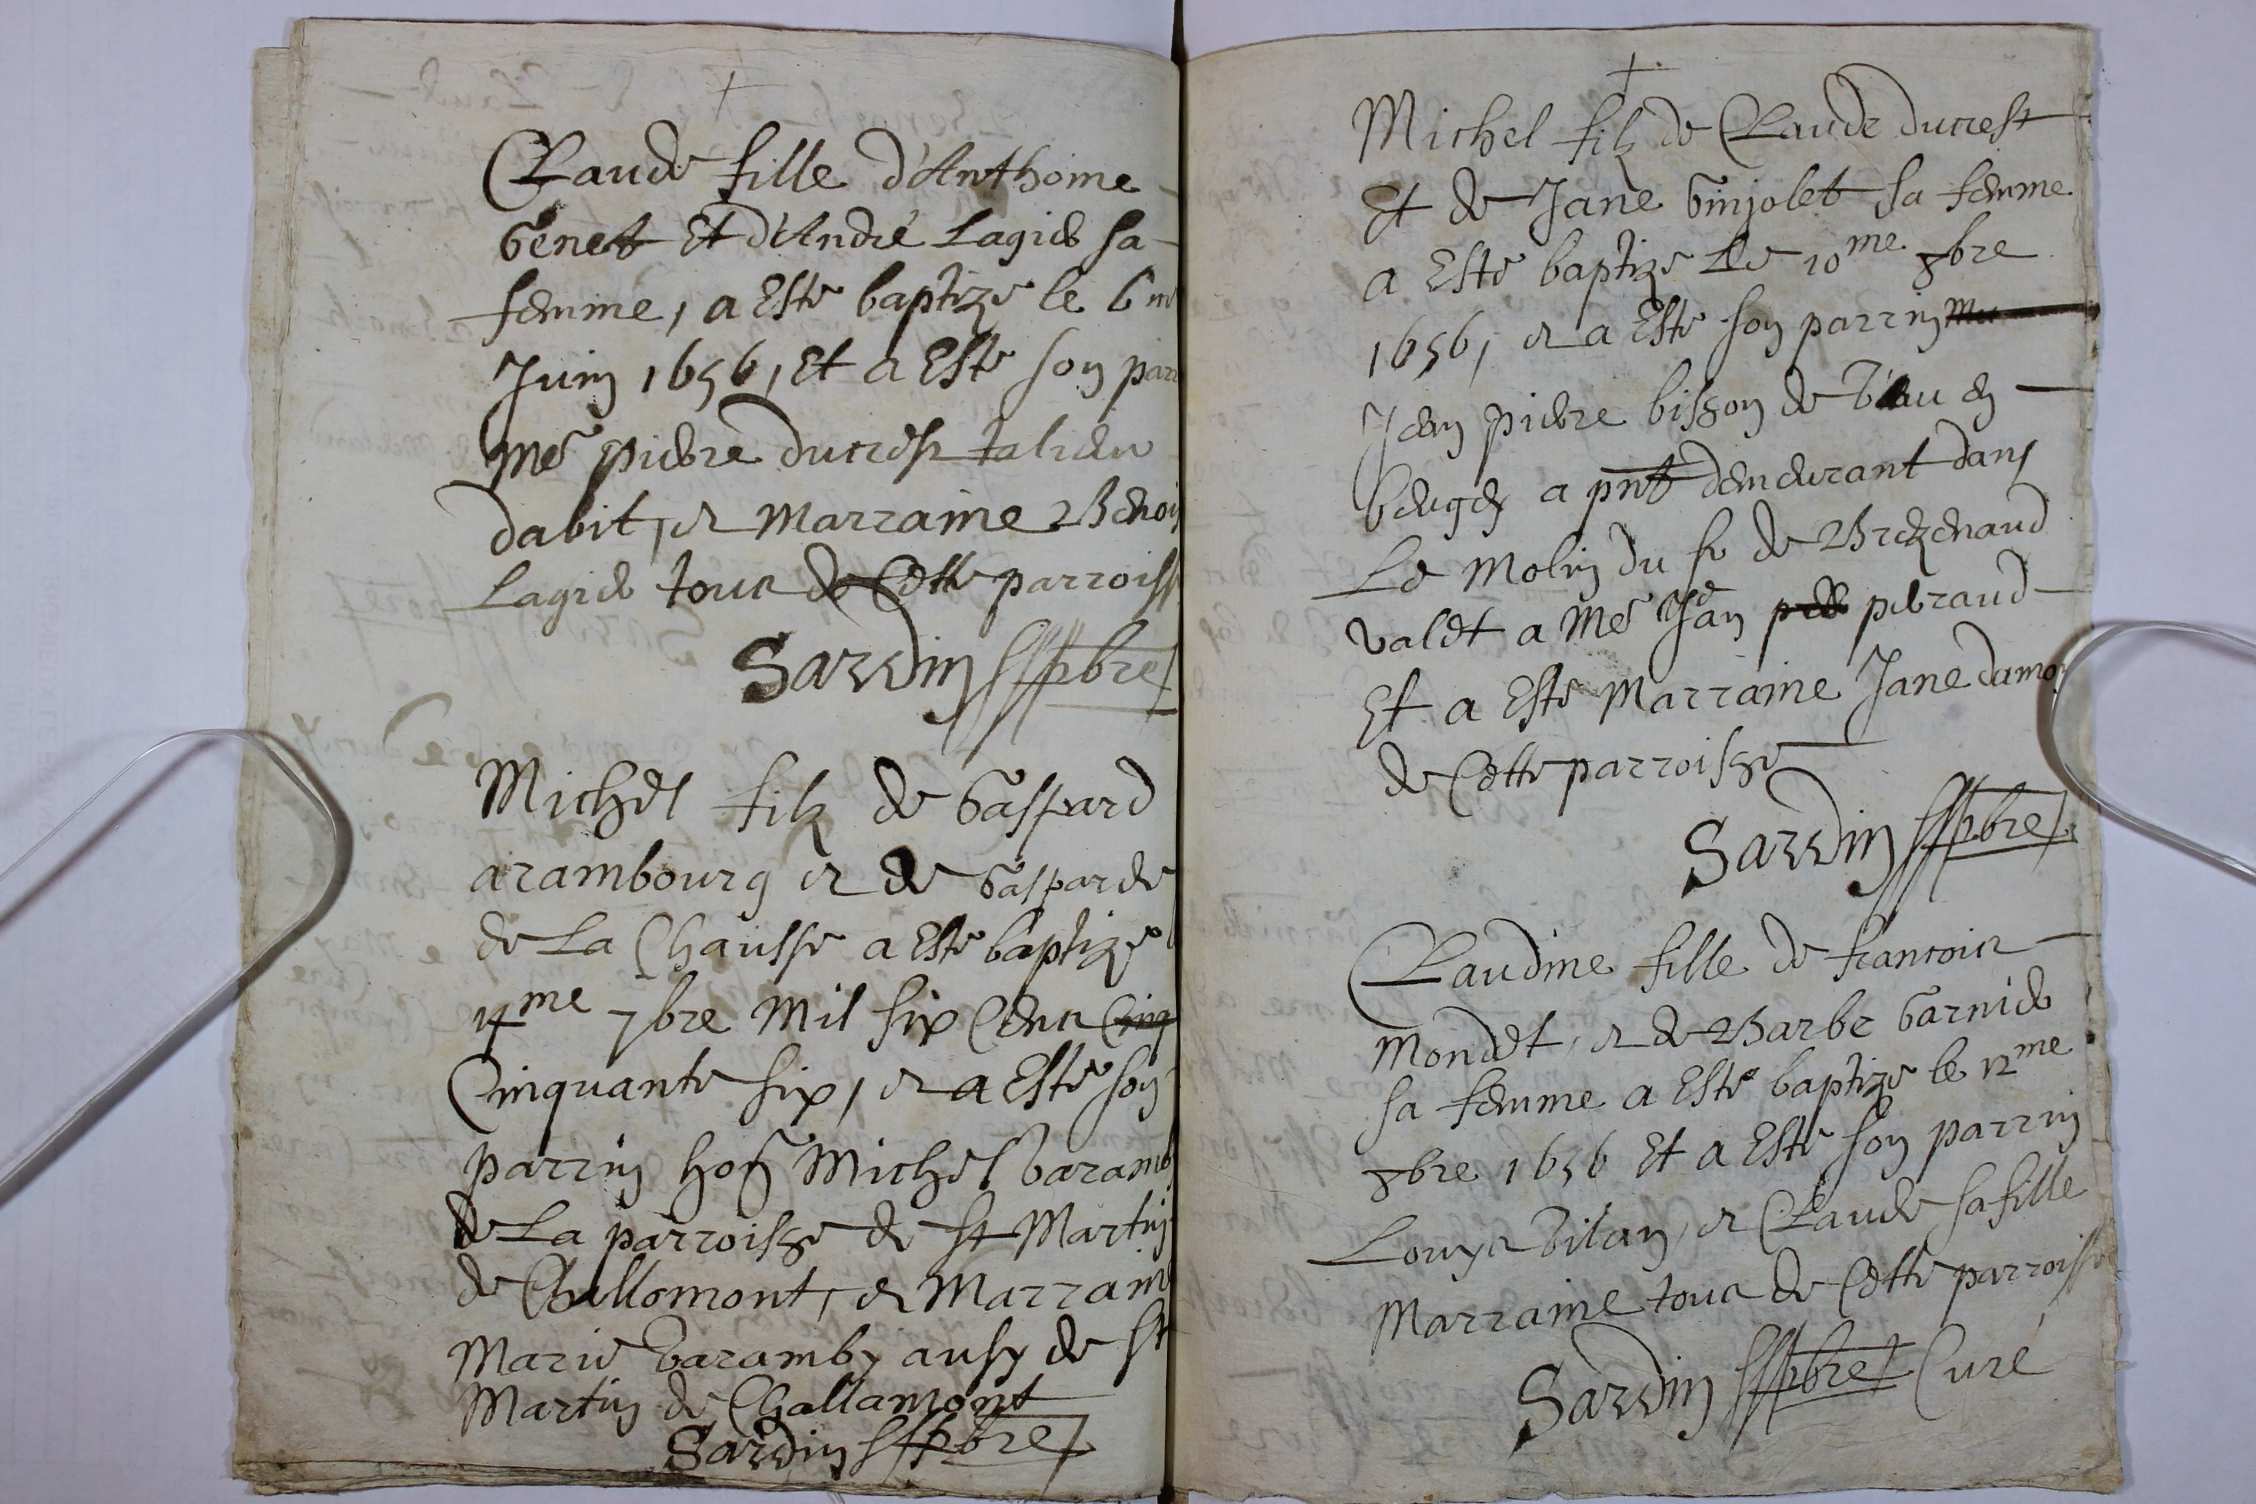 Claude fille d'Anthoine
Genet Et d'André Lagier sa
femme, a Esté baptize le 6me
Juin 1656, Et a Esté son parr
Me pierre ducrest
dabit, et Marraine Benoi
Lagier tous de Cette parroiss
Sardin pbre
Michel filz de Gaspard
arambourg et de Gasparde
de La Chausse a Esté baptizé
4me 7bre Mil six Cens Cinq
Cinquante six, et a Esté son
parrin hon Michel
de La parroisse de St Martin
de Challomont, et Marrain
Marie aussy de St
Martin de Challamont
Sardin pbre
Michel filz de Claude ducrest
Et de Jane Ginjolet sa femme
a Esté baptizé Le 10me 8bre
1656, et a Esté son parrin
Jean pierre bisson de en
beugey a pnt demeurant dans
Le Molin du sr de Brezenaud
valet a Me Jean peraud
Et a Esté Marraine Jane damo
de Cette parroisse
Sardin pbre
Claudine fille de francois
Mondet, et de Barbe Garnier
sa femme a Esté baptize le 12me
8bre 1656 Et a Esté son parrin
Louys Bilan, et Claude sa fille
Marraine tous de Cette parroisse
Sardin pbre Curé